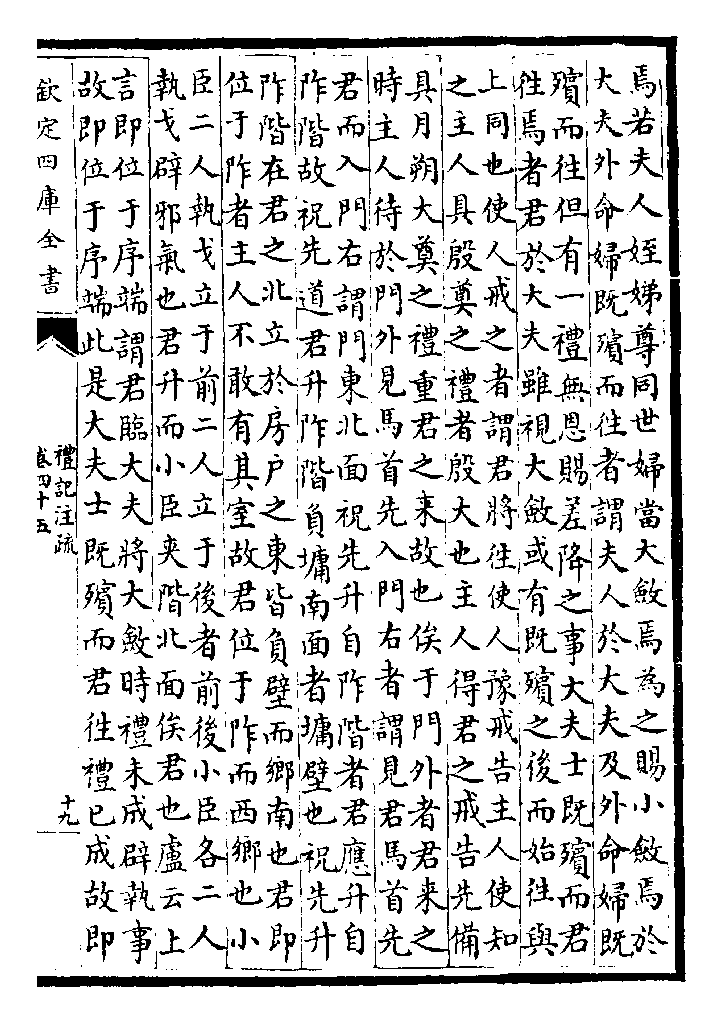 焉若夫人姪娣尊同世婦當大斂焉為之賜小斂焉於
大夫外命婦既殯而往者謂夫人於大夫及外命婦既
殯而往但有一禮無恩賜差降之事大夫士既殯而君
往焉者君於大夫雖視大斂或有既殯之後而始往與
上同也使人戒之者謂君將往使人豫戒告主人使知
之主人具殷奠之禮者殷大也主人得君之戒告先備
具月朔大奠之禮重君之来故也俟于門外者君来之
時主人待於門外見馬首先入門右者謂見君馬首先
君而入門右謂門東北面祝先升自阼階者君應升自
阼階故祝先道君升阼階負墉南面者墉壁也祝先升
阼階在君之北立於房户之東皆負壁而鄉南也君即
位于阼者主人不敢有其室故君位于阼而西鄉也小
臣二人執戈立于前二人立于後者前後小臣各二人
執戈辟邪氣也君升而小臣夾階北面俟君也盧云上
言即位于序端謂君臨大夫將大斂時禮未成辟執事
故即位于序端此是大夫士既殯而君往禮已成故即
欽定四庫全書
禮記注疏
卷四十五
十九